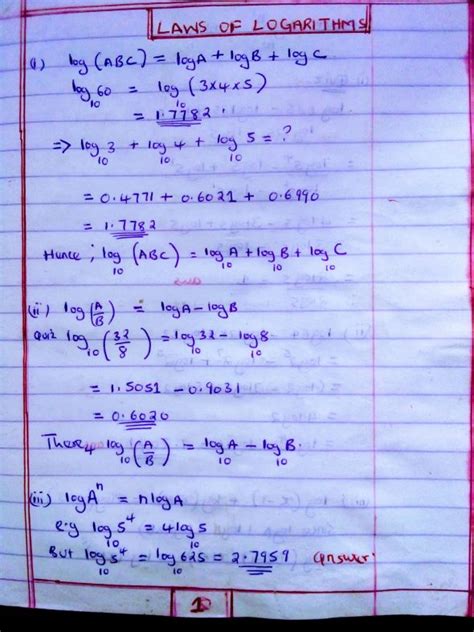 LAWS OF LOGARITHMS
(i) log (ABC) = logA + logB + log C
log₁₀60 = log₁₀(3x4x5)
= 1.7782.
=> log₁₀3 + log₁₀4 + log₁₀5 = ?
= 0.4771 + 0.6021 + 0.6990
= 1.7782
Hence ; log₁₀(ABC) = log₁₀A + log₁₀B + log₁₀C
(ii) log(A/B) = logA - logB
Quiz log₁₀(32/8) = log32 - log8
= 1.5051 - 0.9031
= 0.6020
There4 log₁₀(A/B) = log₁₀A - log₁₀B.
(iii) logAⁿ = nlogA
E.g log₁₀5⁴ = 4log5
But log₁₀5⁴ = log₁₀625 = 2.7959 (answer)
1